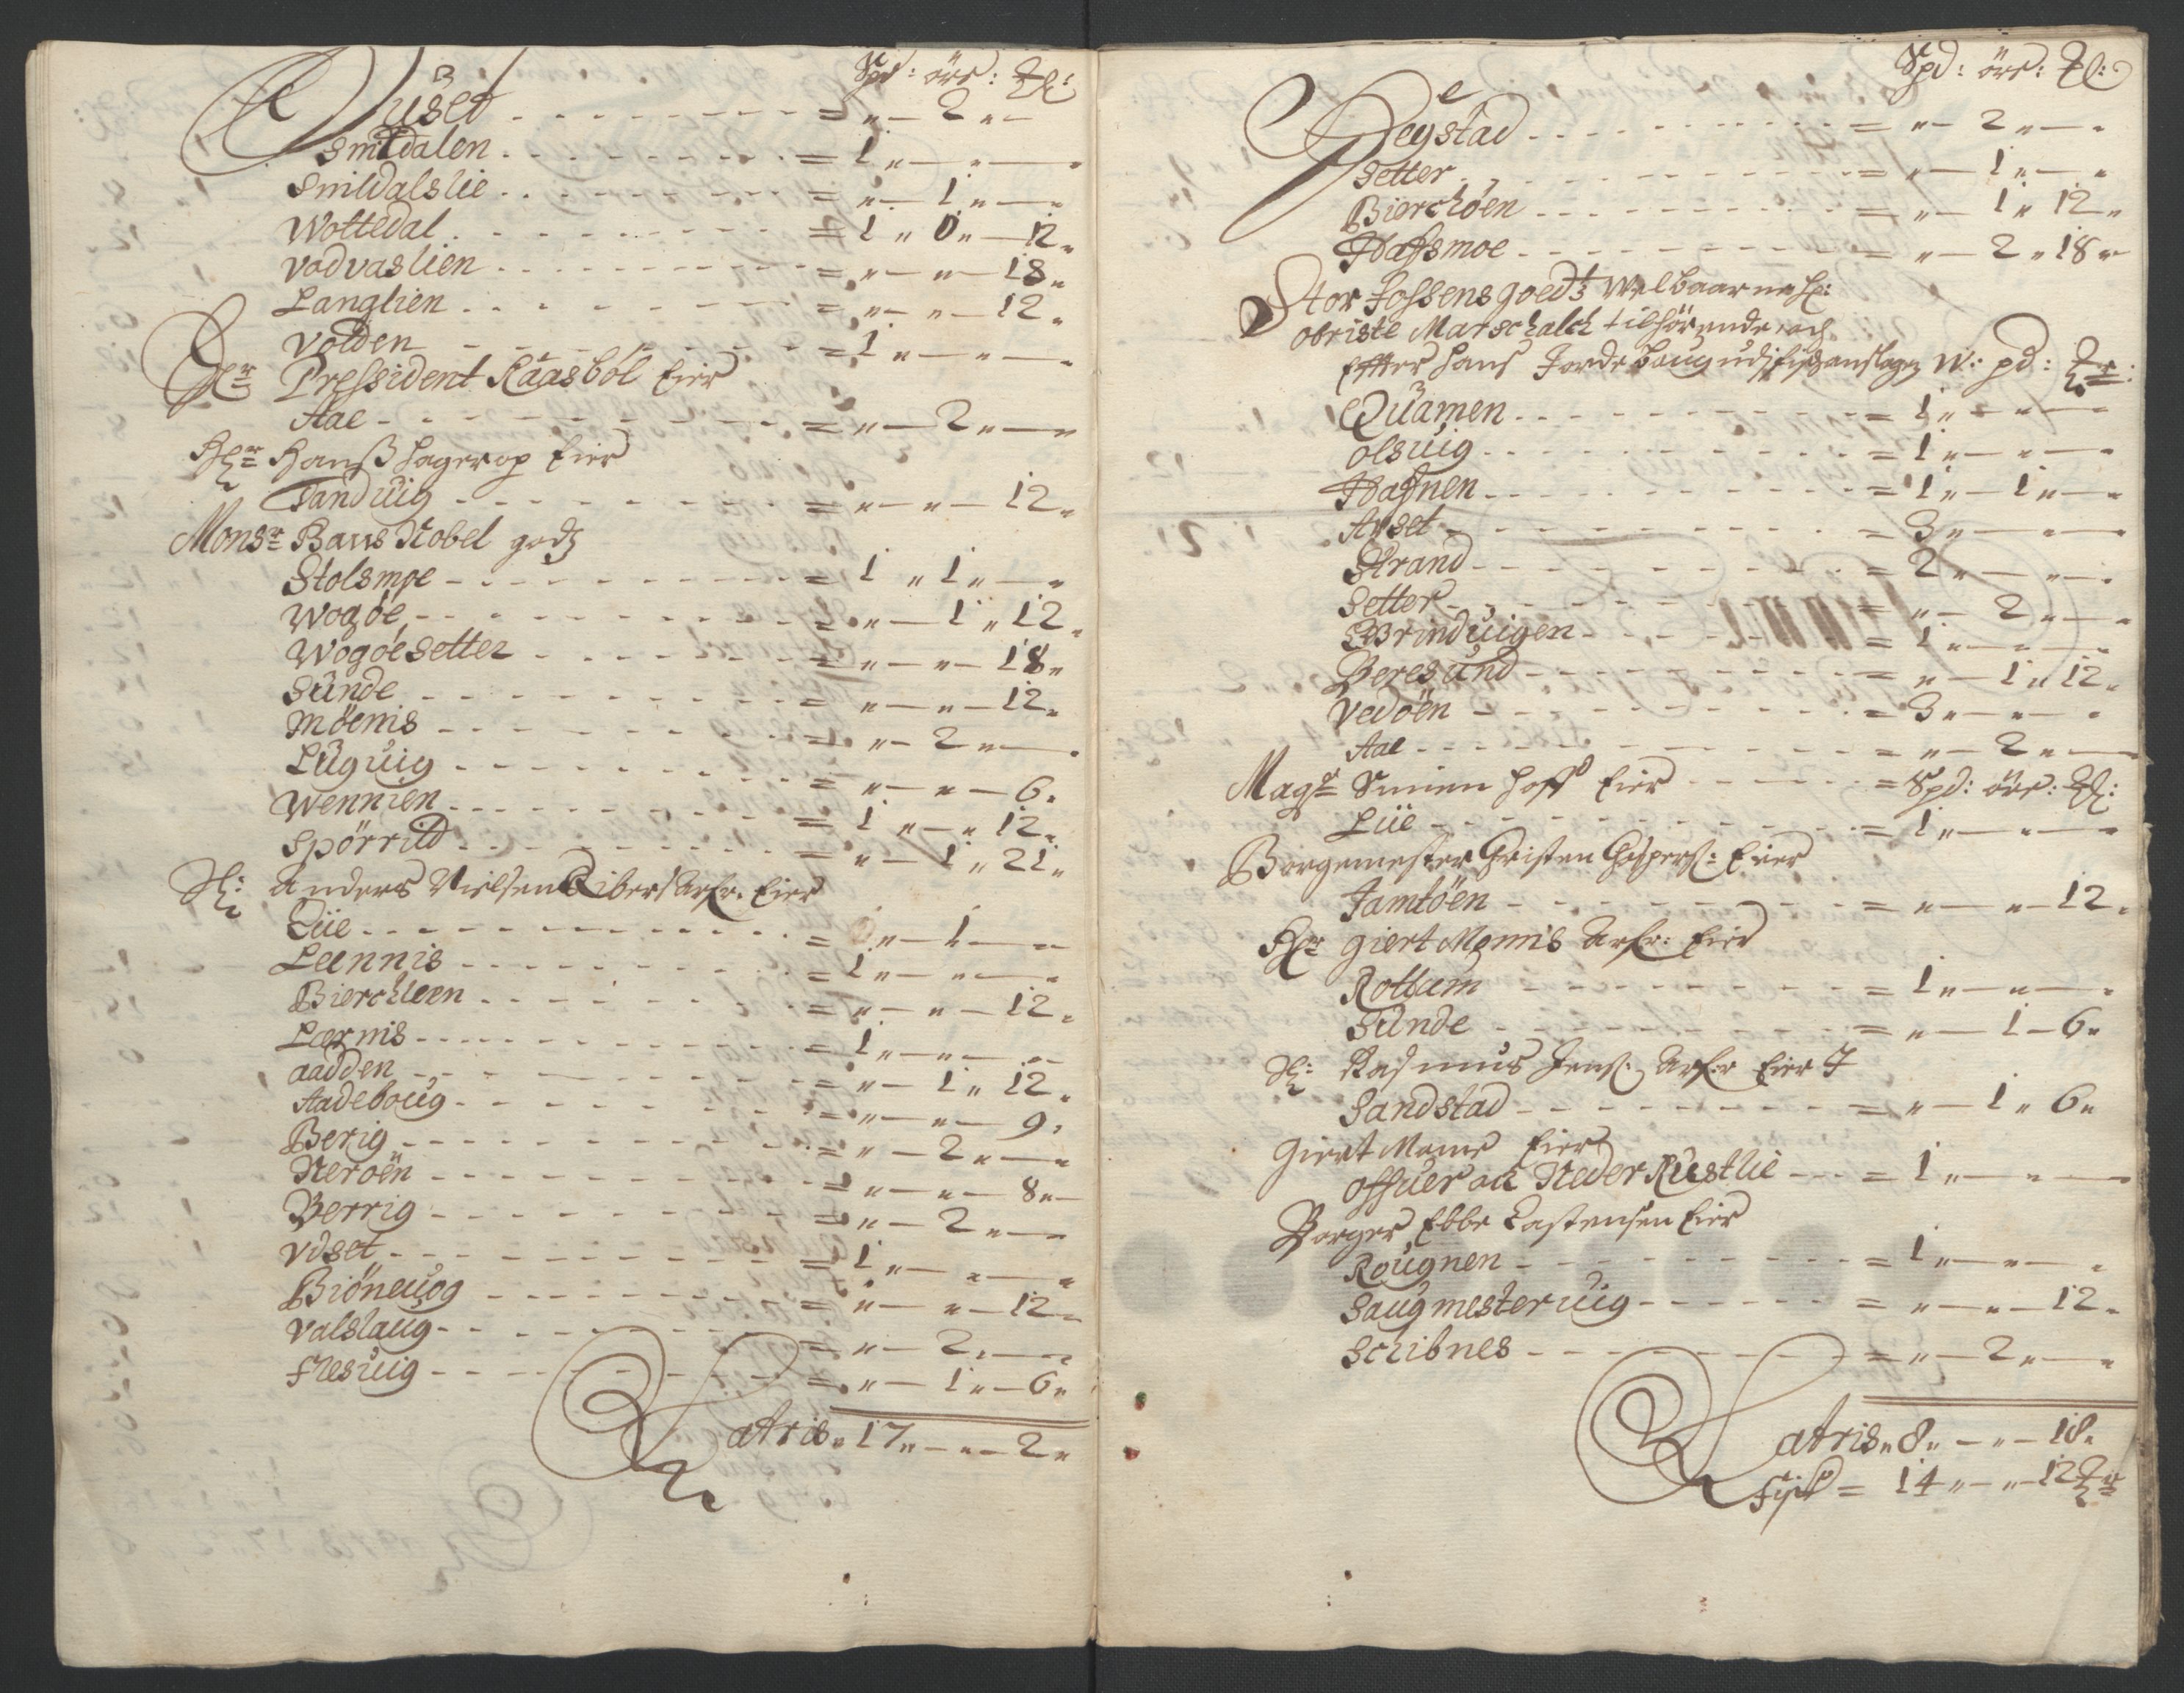 Spd: örr: ℔:
Uuset - - - = „ — 2 „ —
Smildalen - - - = 1 „ — „ —
Smildalslie - - - = „ — 1 „ —
Wottedal - - - = 1 „ 0 „ — 12 „
Vadvaslien - - - = „ — „ — 18 „
Langlien - - - = „ — „ — 12 „
Volden - - - = 1 „ — „ —
Hr Pressident Kaasböl Eier
Aae - - - = „ — 2 „ — „
Hr Hanss Hagerop Eier
Sanduig - - - = „ — „ — 12 „
Monsr Bans Nobel godz
Stolsmoe - - - = 1 „ 1 „ — „
Wogöe - - - = „ — 1 „ 12 „
Wogöesetter - - - = „ — „ — 18 „
Sunde - - - = „ — „ — 12 „
Möenis - - - = „ — 2 „ —
Luguig - - - = „ — „ — 6 „
Wennien - - - = 1 „ — „ 12 „
Spörrild - - - = „ — 1 „ 21 „
Sl: Anders Nielsen Ribers Arfr. Eier
Lie - - - = „ — 1 — „
Lennis - - - = 1 „ — „ —
Bierchleen - - - = „ — „ — 12 „
Lernis - - - = 1 „ — „ —
aadden - - - = „ — 1 „ 12 „
Aadeboug - - - = „ — „ — 9 „
Berig - - - = „ — 2 „ — „
Neroën - - - = „ — „ — 8 „ —
Berrig - - - = „ — 2 „ —
Vdset - - - = 1 „ — „ —
Biöneuog - - - = „ — „ — 12 „
Valslaug - - - = „ — 2 „ —
Flesuig - - - = „ — 1 „ — 6 „
Latris „ 17 „ — „ — 2 „
Spd: örr: ℔:
Regstad - - - = „ — 2 „ — „
Setter - - - = „ — 1 „ — „
Bierchöen - - - = „ — 1 „ 12 „
Hafsmoe - - - = „ — 2 „ 18 „
Stor Fossens goedtz Welbaarne Hr:
obriste Marschalch tilhörende, och
Effter hans Jordeboug udj fisk anslagen W: pd:
Quamen - - - = 1 „ — „ —
olsuig - - - = 1 „ — „ —
Hafnen - - - = 1 „ — 1 „ — „
Avset - - - = 3 „ — „ —
Strand - - - = 2 „ — „ —
Setter - - - = „ — 2 „ — „
Grinduigen - - - = 1 „ — „ —
Beresund - - - = „ — 1 „ 12 „
Vedöen - - - = 3 „ — „ — „
Aae - - - = „ — 2 „ —
Magr Simen Hoff Eier - - - = Spd: örr: ℔:
Lüe - - - = 1 „ — „ —
Borgemester Christen Caspers: Eier
Jamtöen - - - = „ — „ — 12 „
Hr giert Momis Arfr: Eier
Rottum - - - = 1 „ — „ — „
Sunde - - - = „ — 1 — 6 „
Sl: Rasmus Jens: Arfr Eier J
Sandstad - - - = „ — 1 „ 6 „
Giert Mome Eier
offuer och Neder Rustlie - - - = 1 „ — „ —
Borger Ebbe Castensen Eier
Rougnen - - - = 1 „ — „ — „
Saugmesteruig - - - = „ — „ — 12 „
Schibnes - - - = „ — 2 „ — „
Latris „ 8 „ — „ — 18 „
fisk = 14 „ — „ — 12